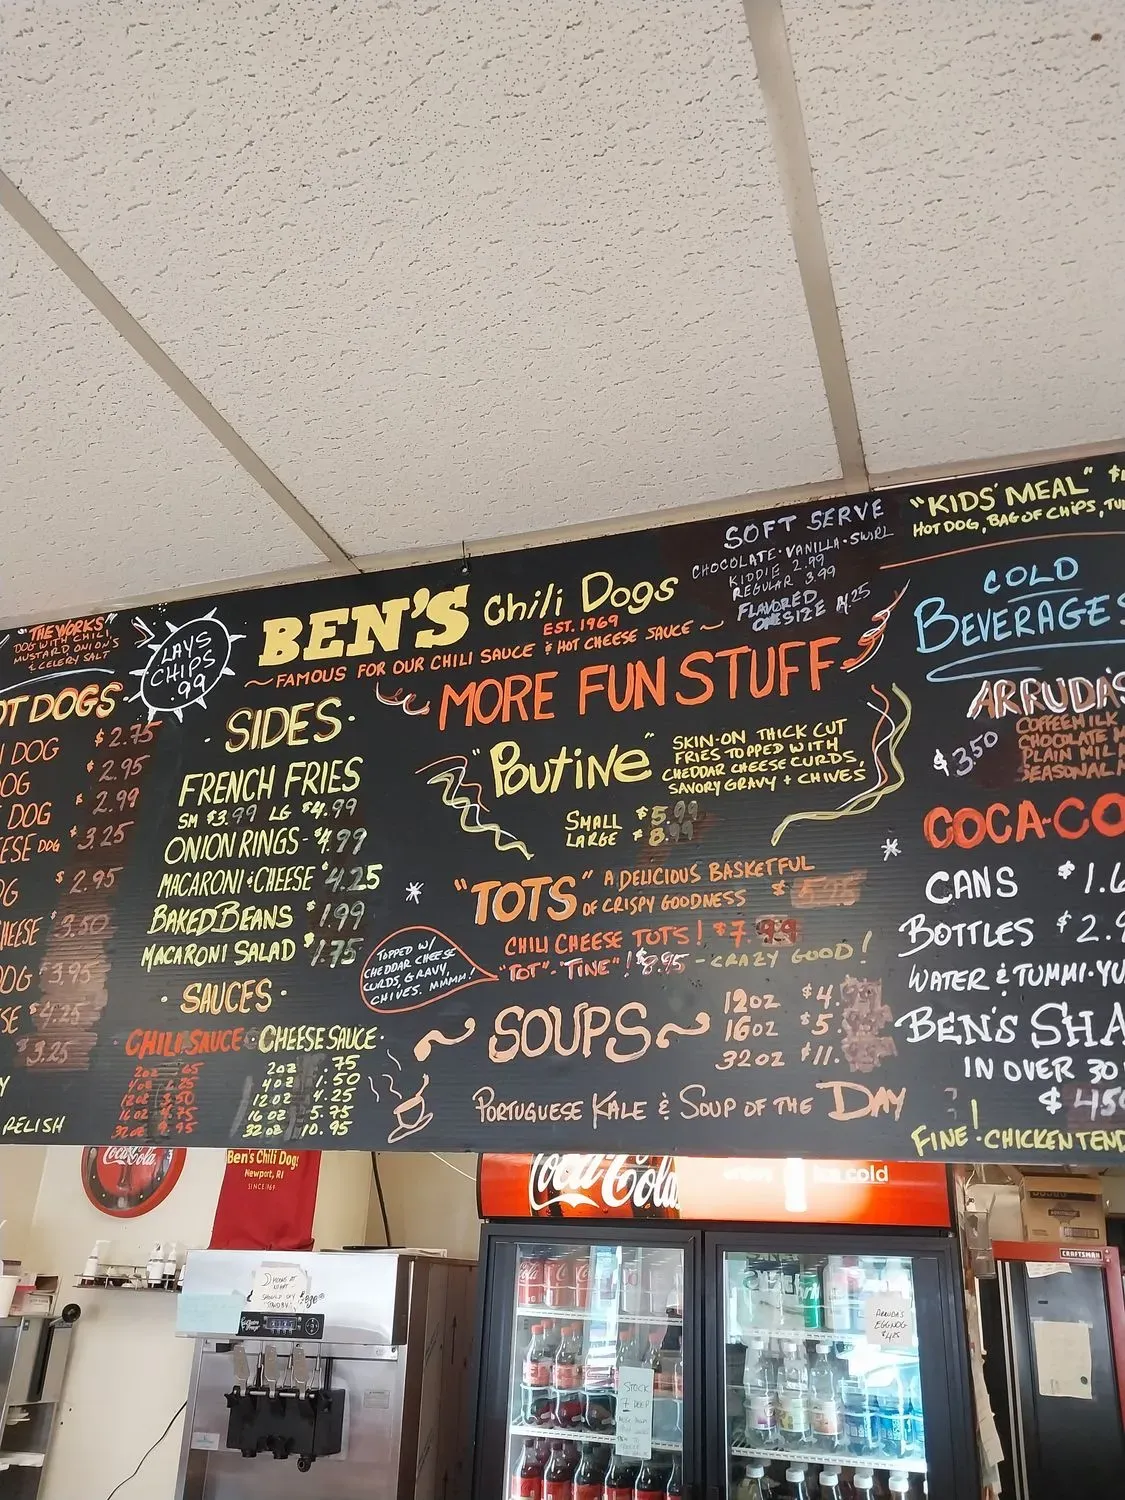 "THE WORKS"
DOG WITH CHILI,
MUSTARD, ONION'S
& CELERY SALT
LAYS
CHIPS
.99
OT DOGS.
DOG $2.75
DOG $2.95
DOG $2.99
ESE DOG $3.25
OG $2.95
CHEESE $3.50
DOG $3.95
SE $4.25
$3.25
Y
RELISH
BEN'S Chili Dogs
EST. 1969
~ FAMOUS FOR OUR CHILI SAUCE & HOT CHEESE SAUCE ~
· SIDES ·
FRENCH FRIES
SM $3.99 LG $4.99
ONION RINGS - $4.99
MACARONI & CHEESE $4.25
BAKED BEANS $1.99
MACARONI SALAD $1.75
· SAUCES ·
CHILI SAUCE
2oz .65
4oz 1.25
12oz 3.50
16oz 4.75
32oz 9.95
CHEESE SAUCE ·
2oz .75
4oz 1.50
12oz 4.25
16oz 5.75
32oz 10.95
MORE FUN STUFF
"Poutine"
SKIN-ON THICK CUT
FRIES TOPPED WITH
CHEDDAR CHEESE CURDS,
SAVORY GRAVY + CHIVES
SMALL $5.99
LARGE $8.99
"TOTS" A DELICIOUS BASKETFUL
OF CRISPY GOODNESS $
CHILI CHEESE TOTS! $7.99
"TOT"-"TINE"! $8.95 - CRAZY GOOD!
TOPPED W/
CHEDDAR CHEESE
CURDS, GRAVY,
CHIVES. MMMM!
~ SOUPS ~
12oz $4.
16oz $5.
32oz $11.
PORTUGUESE KALE & SOUP OF THE DAY
SOFT SERVE
CHOCOLATE · VANILLA · SWIRL
KIDDIE 2.99
REGULAR 3.99
FLAVORED
ONE SIZE 4.25
"KIDS' MEAL" $
HOT DOG, BAG OF CHIPS, TU
COLD
BEVERAGES
ARRUDA'S
$3.50
COFFEE MILK
CHOCOLATE M
PLAIN MIL
SEASONAL M
COCA-CO
CANS $1.6
BOTTLES $2.9
WATER & TUMMI-YU
BEN'S SHA
IN OVER 30
$450
FINE! CHICKEN TEND
Coca-Cola
Ben's Chili Dogs
Newport, RI
SINCE 1969
Coca-Cola
ice cold
CRAFTSMAN
ARRUDA'S
EGGNOG
$4.25
STOCK
7 DEEP